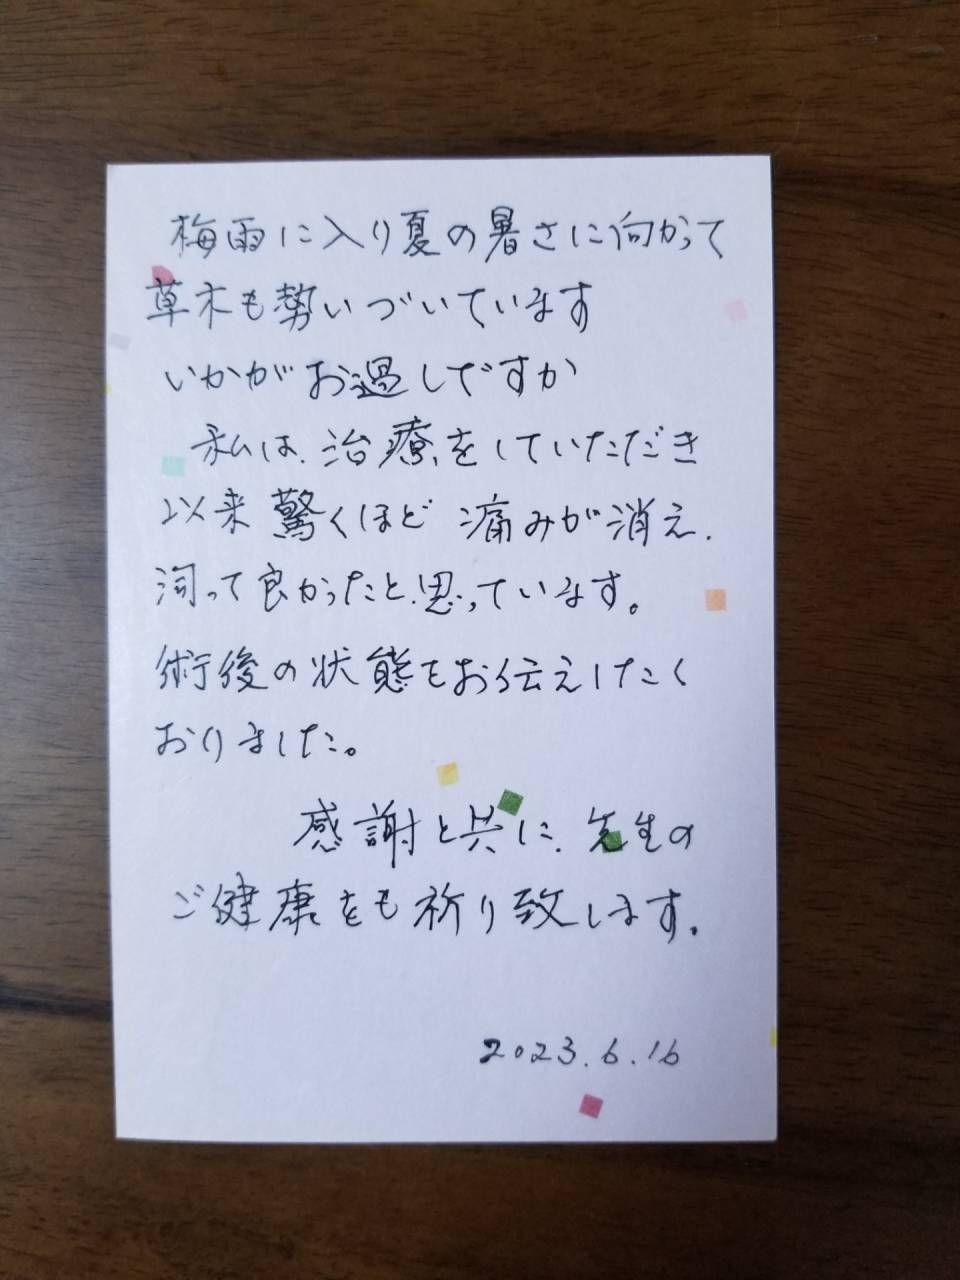 梅雨に入り夏の暑さに向かって
草木も勢いづいています
いかがお過しですか
私は、治療をしていただき
以来驚くほど 痛みが消え、
伺って良かったと思っています。
術後の状態をお伝えしたく
おりました。
感謝と共に、先生の
ご健康をも祈り致します。
2023.6.16